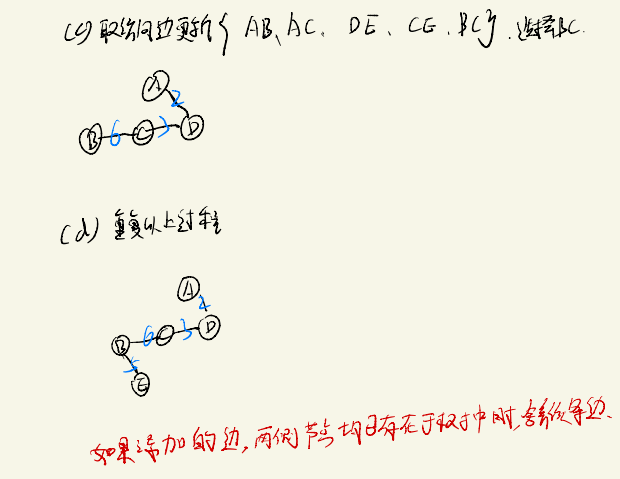 (c) 取络侯边更新{ AB、AC、DE、CE、BC}、选择BC.
A
2
B 6 C 3 D
(d) 重复以上过程
A
2
B 6 C 3 D
5
E
如果添加的边,两侧节点均已存在于树中时,舍弃该条边.